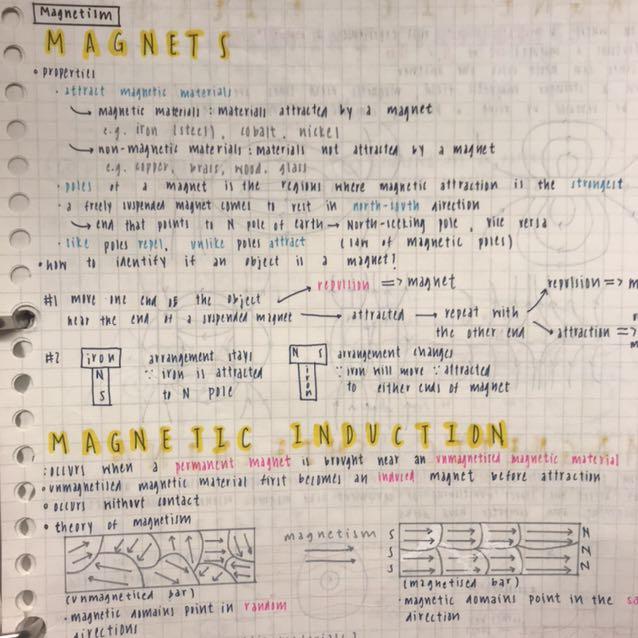 Magnetism
MAGNETS
• properties
· attract magnetic materials
↳ magnetic materials : materials attracted by a magnet
e.g. iron (steel), cobalt, nickel
↳ non-magnetic materials : materials not attracted by a magnet
e.g. copper, brass, wood, glass
· poles of a magnet is the regions where magnetic attraction is the strongest
· a freely suspended magnet comes to rest in north-south direction
↳ end that points to N pole of earth → North-seeking pole, vice versa
· like poles repel, unlike poles attract (law of magnetic poles)
• how to identify if an object is a magnet?
#1 move one end of the object → repulsion => magnet repulsion => m
near the end of a suspended magnet → attracted → repeat with
the other end attraction =>
#2 iron N S arrangement stays ∵ iron is attracted to N pole
N S iron arrangement changes ∵ iron will move ∵ attracted to either ends of magnet
MAGNETIC INDUCTION
: occurs when a permanent magnet is brought near an unmagnetised magnetic material
• unmagnetised magnetic material first becomes an induced magnet before attraction
• occurs without contact
• theory of magnetism
magnetism
S N
S N
S N
(unmagnetised bar)
· magnetic domains point in random
directions
(magnetised bar)
· magnetic domains point in the sa
direction